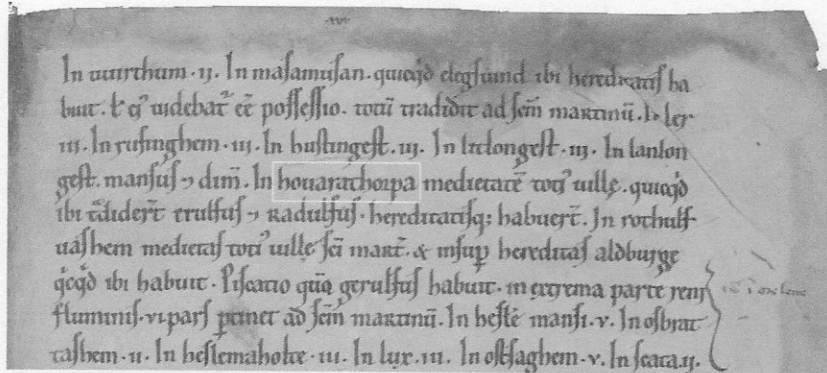 In uuirthum · ij. In masamusan · quicqd elegsuind ibi hereditatis ha
buit. ł ei' uidebat' eē possessio. totū tradidit ad scm̄ martinū.
iij. In rusinghem · iij. In hustingest. iij. In lutlongest. iij. In lanlon
gest. mansus ⁊ dim̄. In houarathorpa medietatē toti' uillę. quicqd
ibi tradidert̄ trulfus ⁊ radulfus · hereditatisq; habuert̄. In rothulf
uashem medietas toti' uillę sci mart̄. & insup hereditas aldburge
qcqd ibi habuit. Piscatio quā gerulfus habuit. in extrema parte reni
fluminis · vi pars ptinet ad scm̄ martinū. In heslē mansi · v. In osbrat
tashem · ii. In heslemaholte · iii. In lux. iii. In ostsaghem · v. In scata. ij.